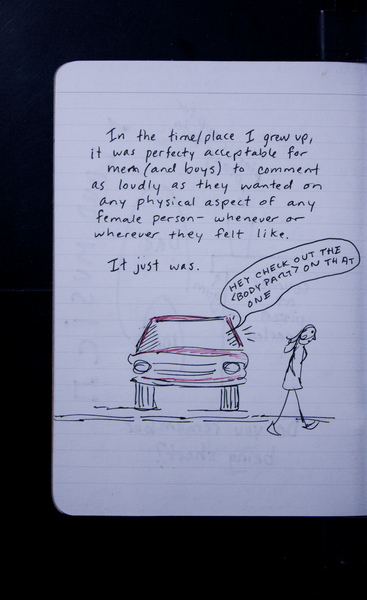 In the time/place I grew up,
it was perfecty acceptable for
men (and boys) to comment
as loudly as they wanted on
any physical aspect of any
female person- whenever or
wherever they felt like.
It just was.
HEY CHECK OUT THE
<BODY PART> ON THAT
ONE